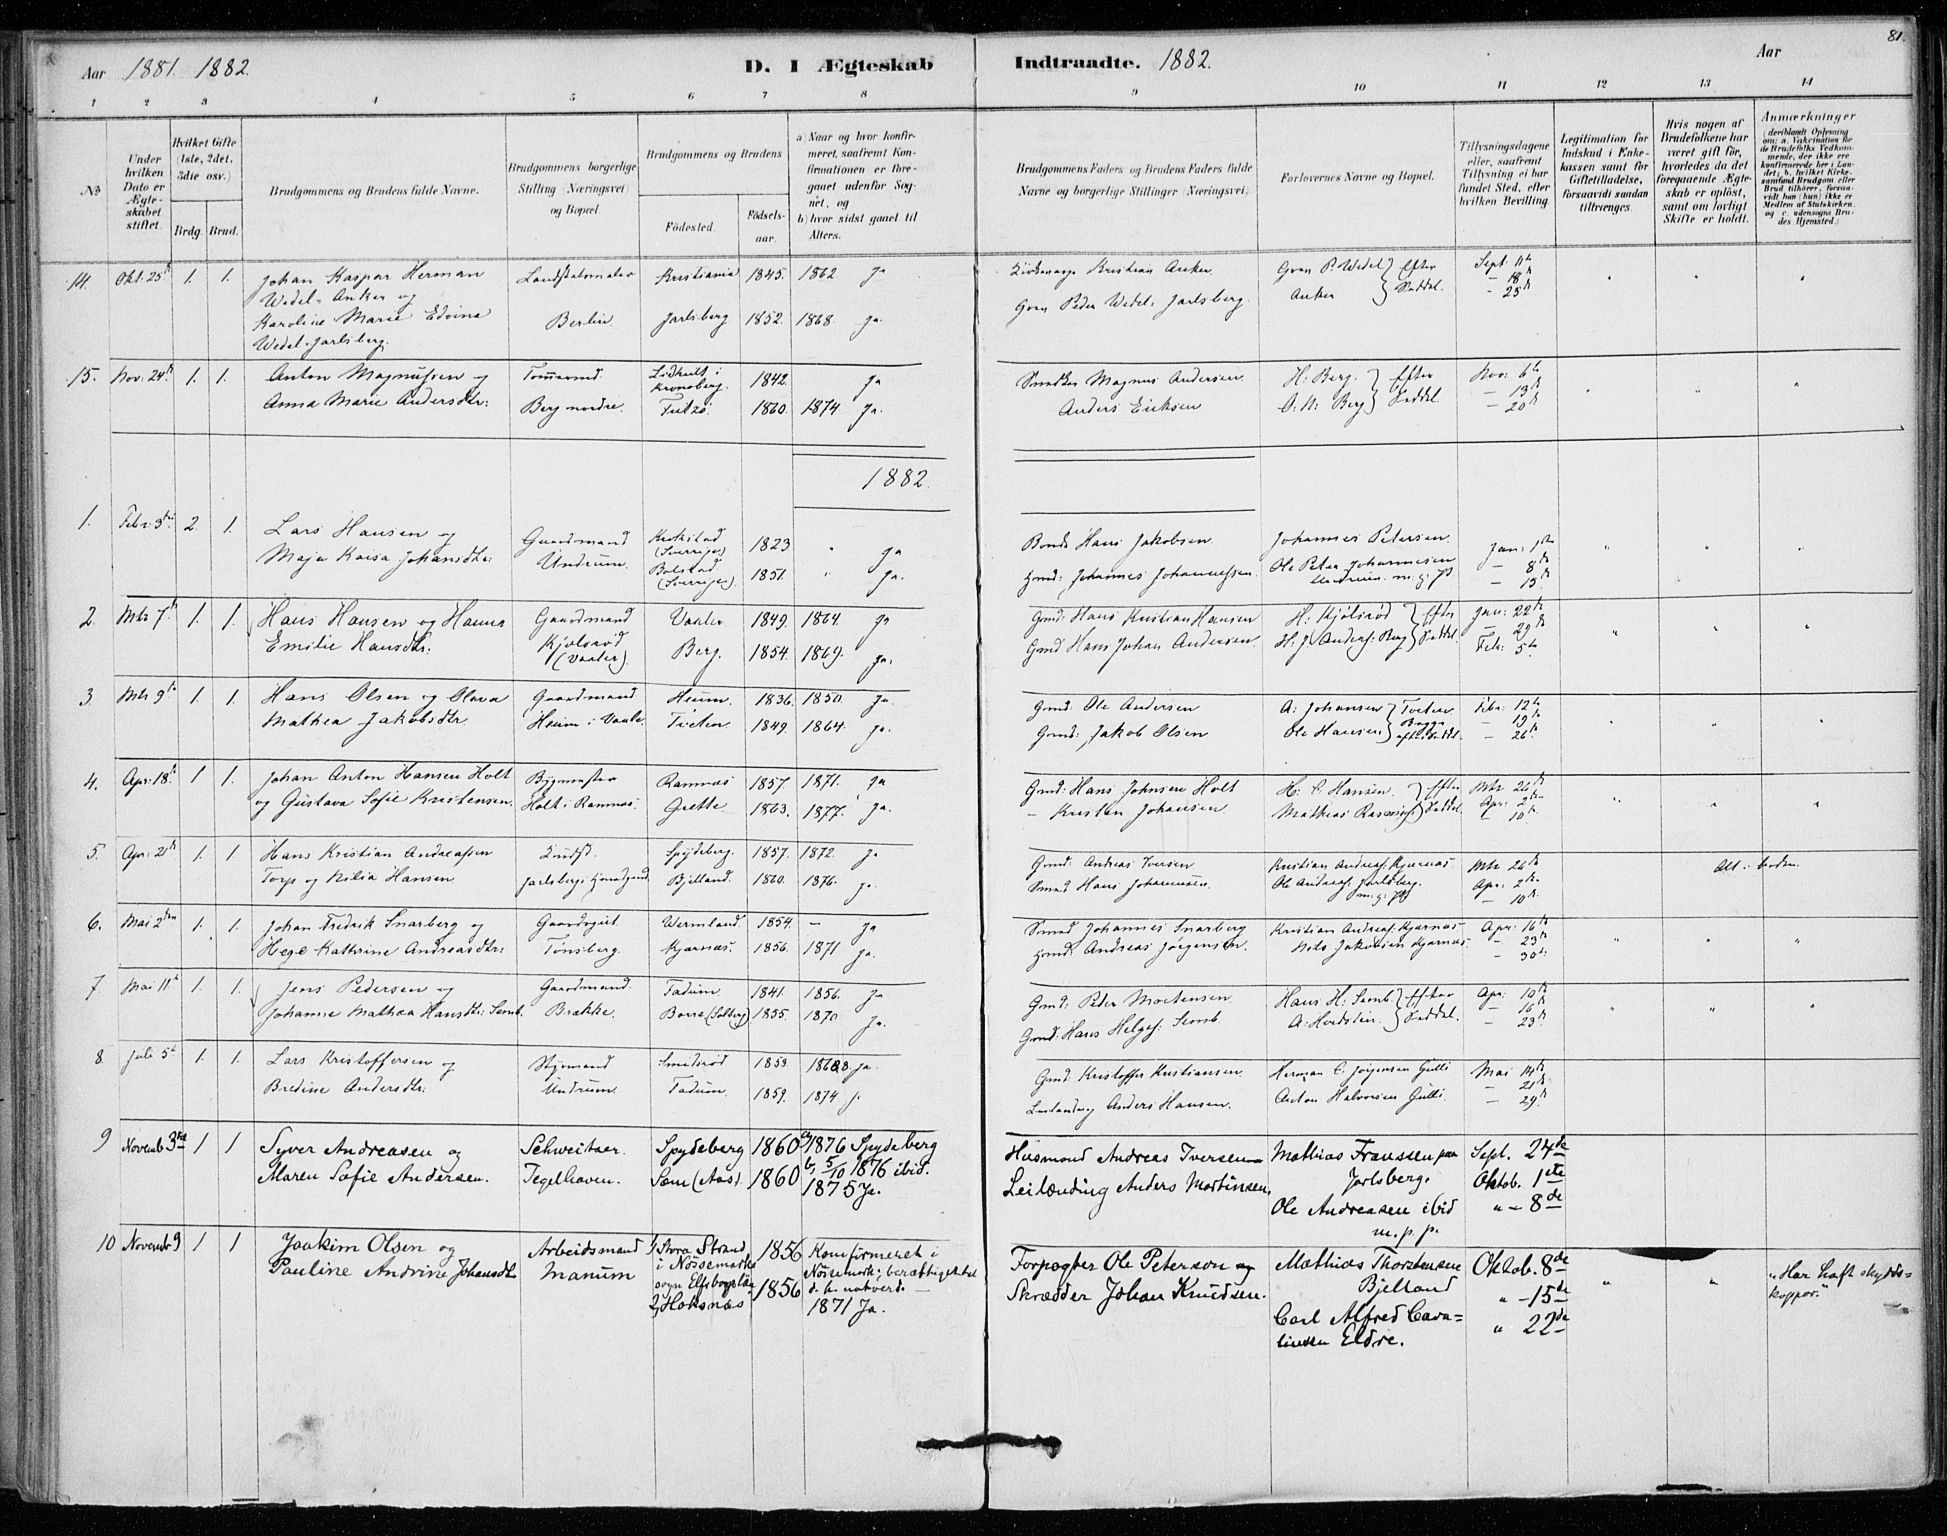 81.
Aar 1881. 1882. D. I Ægteskab Indtraadte. 1882. Aar
1 2 3 4 5 6 7 8 9 10 11 12 13 14
No
Under hvilken Dato er Ægteskabet stiftet.
Hvilket Gifte (1ste, 2det, 3die osv.)
Brdg. Brud.
Brudgommens og Brudens fulde Navne.
Brudgommens borgerlige Stilling (Næringsvei) og Bopæl.
Brudgommens og Brudens
Fødested.
Fødselsaar.
a) Naar og hvor konfirmeret, saafremt Konfirmationen er foregaaet udenfor Sognet, og
b) hvor sidst gaaet til Alters.
Brudgommens Faders og Brudens Faders fulde Navne og borgerlige Stillinger (Næringsvei).
Forlovernes Navne og Bopæl.
Tillysningsdagene eller, saafremt Tillysning ei har fundet Sted, efter hvilken Bevilling.
Legitimation for Indskud i Enkekassen samt for Giftetilladelse, forsaavidt saadan tiltrænges.
Hvis nogen af Brudefolkene har været gift før, hvorledes da det foregaaende Ægteskab er opløst, samt om lovligt Skifte er holdt.
Anmærkninger (deriblandt Oplysning om: a. Vakcination for de Brudefolks Vedkommende, der ikke ere konfirmerede her i Landet; b. hvilket Kirkesamfund Brudgom eller Brud tilhører, forsaavidt han (hun) ikke er Medlem af Statskirken, og c. udensogns Brudes Hjemsted.)
14. Okt: 25de 1. 1. Johan Kaspar Herman Landstalmester Kristiania 1845. 1862. Ja Kristian Anker. Grev P. Wedel Efter Sept. 11te
Wedel-Anker og Grev Peder Wedel-Jarlsberg. Anker Seddel. - 18de
Karoline Marie Edvina Berlin. Jarlsberg 1852. 1868. Ja. - 25de
Wedel-Jarlsberg.
15. Nov: 24de 1. 1. Anton Magnussen og Kronoberg. 1842. Ja Magnus Andersen. H: Berg. Efter Nov: 6te
Anna Marie Andersdtr: Berg nordre. 1860. 1874. Ja. Anders Eriksen O. N: Berg Seddel. - 13de
- 20de
1882.
1. Febr: 3die 2. 1. Lars Hansen og Gaardmand (Sverrige) 1823 Ja Bonde Hans Jakobsen Johannes Petersen. Jan: 1ste
Maja Kaisa Johansdtr: Undrum. Bolstad (Sverrige). 1851. Ja. Gmd: Johannes Johannessen. Ole Peter Johannesen - 8de
Undrum. m. g. P. - 15de
2. Mts 7de 1. 1. Hans Hansen og Hanna Gaardmand Vaaler 1849. 1864. Ja Gmd: Hans Kristian Hansen H: Kjølsrød Efter Jan: 22de
Emilie Hansdtr: Kjølsrød (Vaaler). Berg. 1854. 1869. Ja. Gmd Hans Johan Andersen. H. J. Anders: Berg Seddel. - 29de
Feb: 5te
3 Mts 9de 1. 1. Hans Olsen og Olava Gaardmand Heum. 1836. 1850. Ja. Gmd: Ole Andersen A: Johansen Tveten Feb: 12te
Mathea Jakobsdtr. Heum i Vaale. Tveten. 1849. 1864. Ja. Gmd: Jakob Olsen Ole Hansen Bogge - 19de
efter Seddel. - 26de
4. Apr: 18de 1 1. Johan Anton Hansen Holt Bygmester Ramnæs 1857. 1871. Ja Gmd: Hans Johnsen Holt H: C. Hansen. Efter Mts 26de
og Gustava Sofie Kristensen. Holt i Ramnæs. Grette 1863. 1877. Ja. - Kristen Johansen Mathias Seddel. Apr: 2den
- 10de
5. Apr: 1. 1. Hans Kristian Andreassen Spydeberg. 1857. 1872. Ja Gmd: Andreas Iversen Kristian Andreas: Kjærnæs Mts 26de
Torp og Nilia Hansen Bjelland. 1860. 1876. Ja. Smed Hans Johannesen. Ole Andreas: Jarlsberg. Apr: 2den
m. g. P. - 10de
6. Mai 2den 1. 1. Johan Fredrik Snarberg og Gaardsgut Wermland. 1854. - Ja Smed Johannes Snarberg Kristian Andreas: Kjærnæs Apr: 16de
Hege Kathrine Andreasdtr: Tønsberg. Kjærnæs. 1856. 1871 Ja. Gmd: Andreas Jørgensen. Nils Jakobsen Kjærnæs - 23de
- 30de
7 Mai 11te 1. 1. Jens Pedersen og Gaardmand. Fadum. 1841. 1856. Ja Gmd: Peter Mortensen Hans H: Semb Efter Apr: 10de
Johanne Mathea Hansdtr: Semb. Brække. Borre (Solberg) 1835. 1870 Ja. Gmd: Hans Helges: Semb. A: Hvidsten. Seddel. - 16de
- 23de
8 Juli 5te 1. 1. Lars Kristoffersen og Styrmand Smiderød 1853. Ja. Gmd: Kristoffer Kristiansen. Herman C. Jørgensen Gulli Mai 14de
Bredine Andersdtr: Undrum. Fadum. 1859. 1874 Anders Hansen. Anton Halvorsen Gulli. - 21de
- 29de
9 Novemb. 3die 1 1 Syver Andreasen og Schweitzer. Spydeberg 1860 a) 1876 Spydeberg Husmand Andreas Iversen Mathias Franssen paa Sept. 24de
Maren Sofie Andersen. Tegelhaven. Sem (Aas). 1860 b) 5/10 1876 ibid. Leilænding Anders Martinsen. Jarlsberg. Oktob. 1ste
1875 Ja. Ole Andreasen ibid " - 8de
m. p. p.
10 Novemb 9 1 1 Joakim Olsen og Arbeidsmand 1) Stora Strand 1856 Konfirmeret i Forpagter Ole Peterson og Mathias Thorstensen Oktob. 8de
Pauline Andrine Johansdtr Manum i Nössemarks Nössemark; Skrædder Johan Knudsen. Bjelland " - 15de "Har haft skyddskoppor."
sogn Elfsborgslän 1856 d. h. nattverd - Carl Alfred " 22de
2) Hoksnæs 1871 Ja. Eldre.